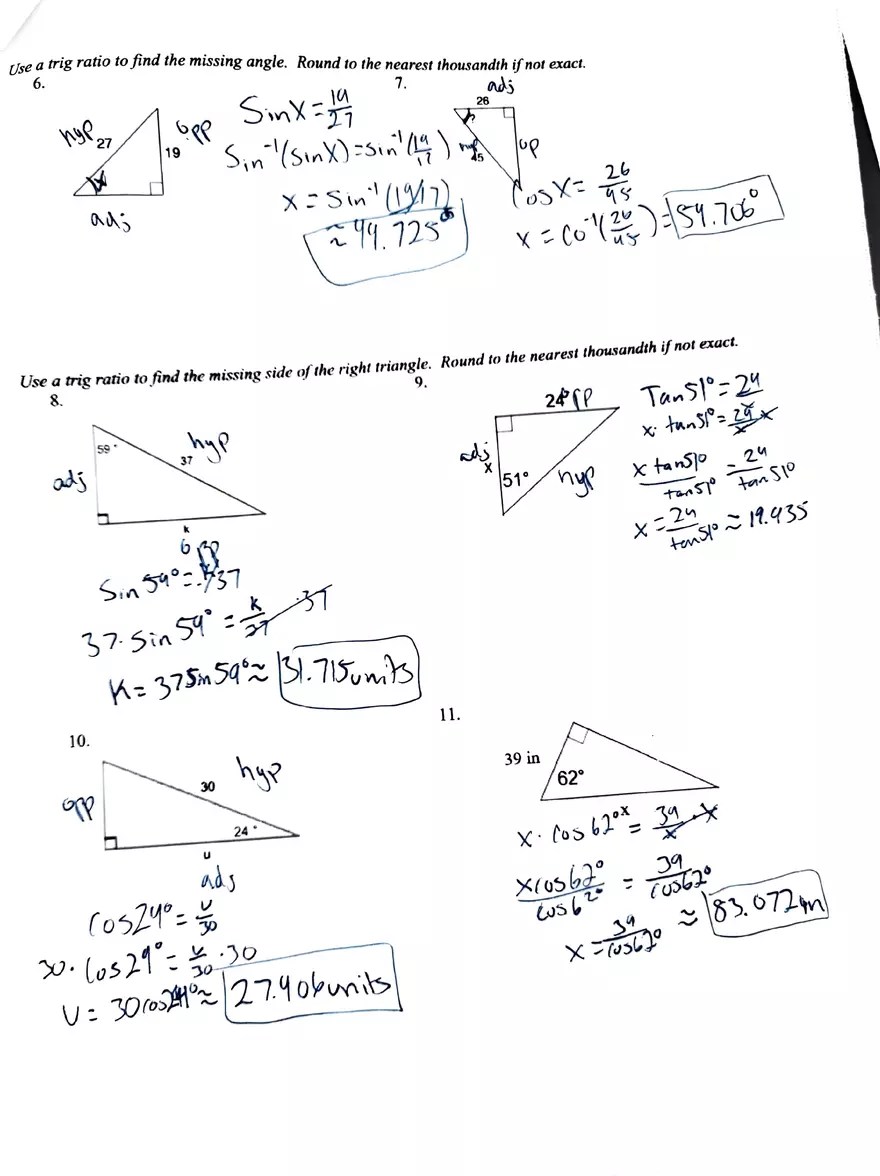 Use a trig ratio to find the missing angle. Round to the nearest thousandth if not exact.
6.
hyp 27
19 opp
x
adj
Sin X = 19/27
Sin⁻¹(sinX) = sin⁻¹(19/17)
x = Sin⁻¹(19/17)
≈ 44.725°
7.
adj
26
hyp 45
op
Cos X = 26/45
x = Co⁻¹(26/45) = 54.706°
Use a trig ratio to find the missing side of the right triangle. Round to the nearest thousandth if not exact.
8.
59°
hyp
37
adj
k
opp
Sin 59° = k/37
37 · Sin 59° = k/37 · 37
K = 37 Sin 59° ≈ 31.715 units
9.
24 opp
adj
x
51°
hyp
Tan 51° = 24
x · tan 51° = 24/x x
x tan 51°/tan 51° = 24/tan 51°
x = 24/tan 51° ≈ 19.435
10.
hyp
30
opp
24°
u
adj
Cos 24° = u/30
30 · Cos 24° = u/30 · 30
U = 30 cos 24° ≈ 27.406 units
11.
39 in
62°
x
x · Cos 62° = 39/x · x
x cos 62°/cos 62° = 39/cos 62°
x = 39/cos 62° ≈ 83.072 in